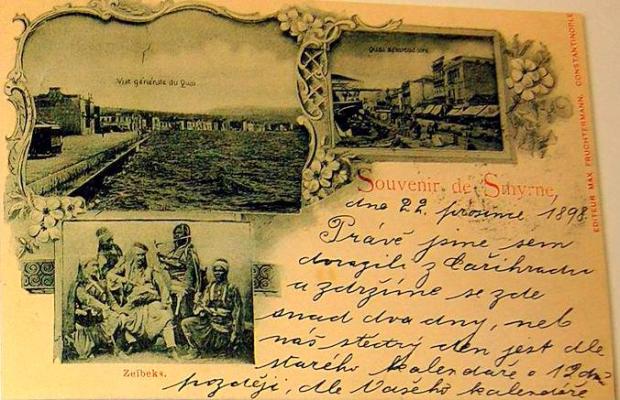 Vue générale du Quai
Quai
EDITEUR MAX FRUCHTERMANN, CONSTANTINOPLE
Souvenir de Smyrne,
dne 22. prosince 1898
Právě jsme sem
dorazili z Cařihradu
a zdržíme se zde
snad dva dny, neb
náš štědrý den jest dle
starého kalendáře o 12 dní
později, dle Vašeho kalendáře
Zeibeks.